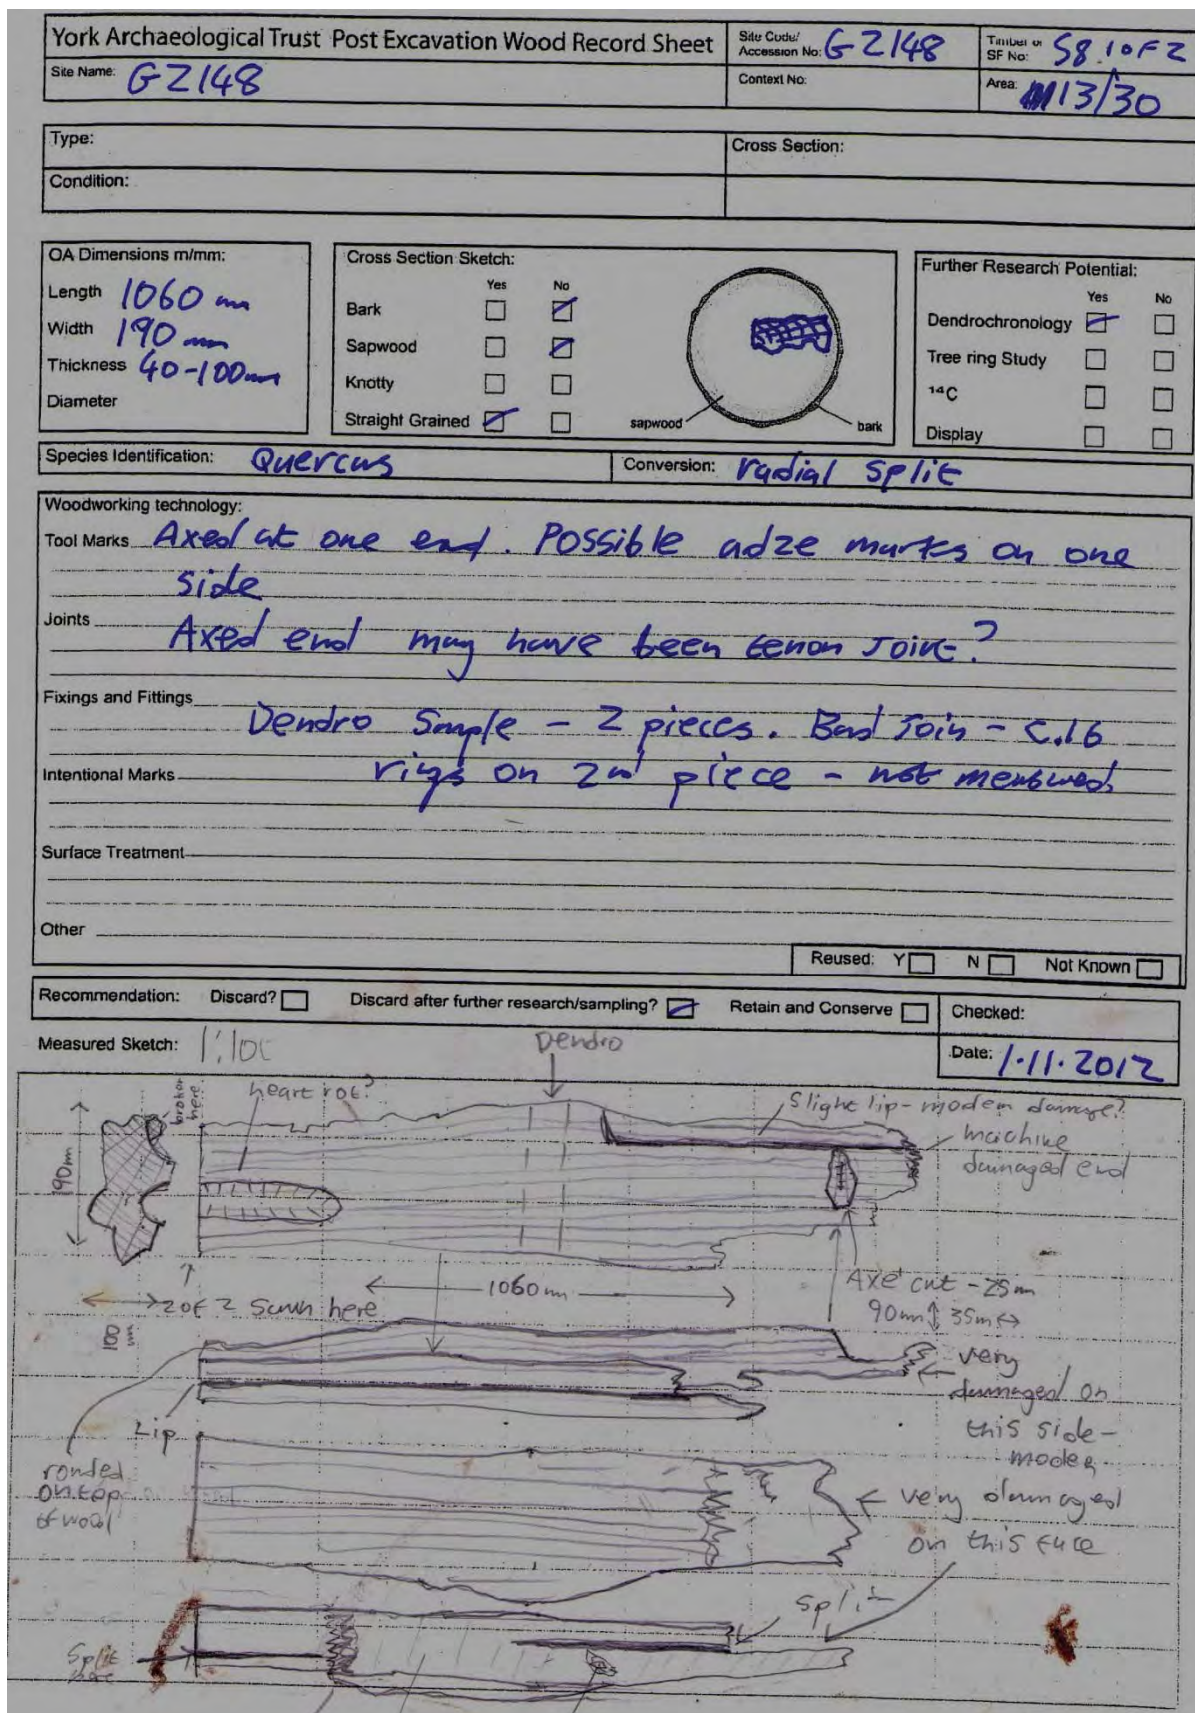 York Archaeological Trust Post Excavation Wood Record Sheet
Site Code/ Accession No: GZ148
Timber or SF No: 58 1 OF 2
Site Name: GZ148
Context No:
Area: 13/30
Type:
Cross Section:
Condition:
OA Dimensions m/mm:
Length 1060 mm
Width 190 mm
Thickness 40-100mm
Diameter
Cross Section Sketch:
Yes No
Bark
Sapwood
Knotty
Straight Grained
sapwood
bark
Further Research Potential:
Yes No
Dendrochronology
Tree ring Study
14C
Display
Species Identification: Quercus
Conversion: radial split
Woodworking technology:
Tool Marks Axed at one end. Possible adze marks on one
side
Joints
Axed end may have been tenon joint?
Fixings and Fittings
Dendro Sample - 2 pieces. Bad join - c.16
Intentional Marks rings on 2nd piece - not measured
Surface Treatment
Other
Reused: Y N Not Known
Recommendation: Discard? Discard after further research/sampling? Retain and Conserve
Checked:
Measured Sketch: 1:10
Date: 1.11.2012
Dendro
broken here
heart rot?
Slight lip - modern damage?
machine
damaged end
190mm
1060mm
2 of 2 sawn here
100 mm
Axe cut - 25m
90mm 35m
very
damaged on
this side -
Lip
ronded
on top
of wood
very damaged
on this face
Split
Split